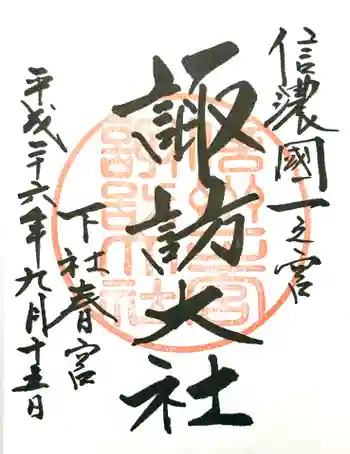 信濃國一之宮
諏訪大社
下社春宮
平成二十六年九月十五日